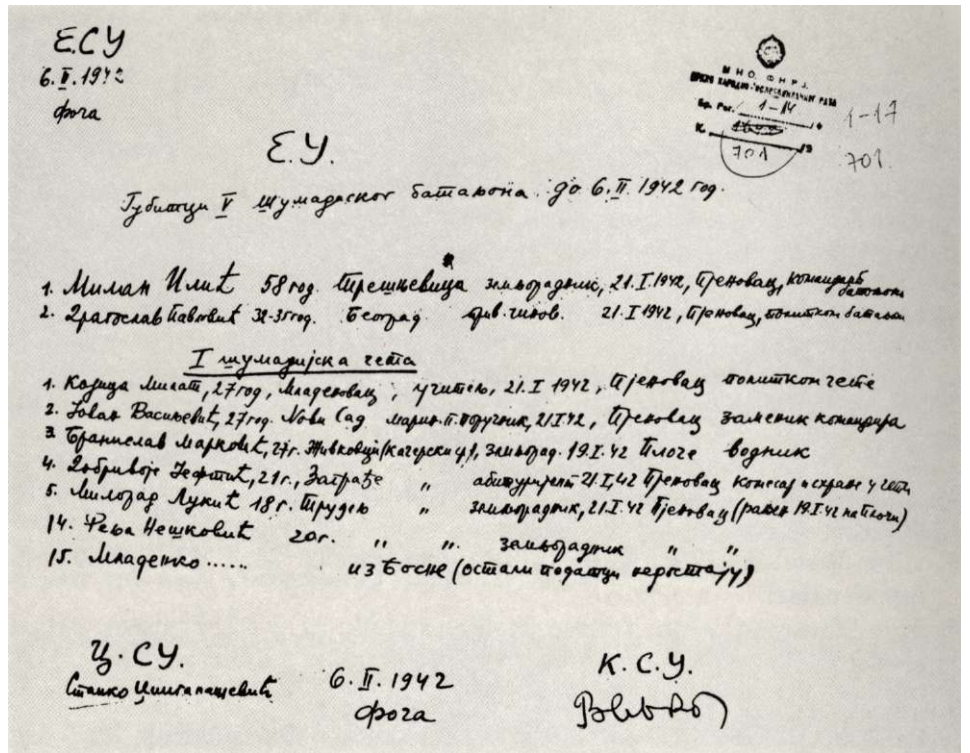 Е.СУ
6.II.1942
фоча
М Н О. Ф Н Р Ј.
Бр. Рег. 1-14
К. 701
1-17
701.
Е.У.
Губитци V Шумадиског батаљона до 6.II.1942 год.
1. Милан Илић 58 год. Трешњевица земљорадник, 21.I.1942, Пјеновац, командир батаљона
2. Драгослав Павловић 32-35 год. Београд прив. чинов. 21.I 1942, Пјеновац, политком батаљ
I шумадијска чета
1. Козица Милат, 27 год, Младеновац, учитељ, 21.I 1942, Пјеновац политком чете
2. Јован Васиљевић, 27 год. Нови Сад марин. п. поручник, 21.I.42, Пјеновац заменик командира
3 Бранислав Марковић, 27 г. Живковци (качерски ср), земљорад. 19.I.42 Плоче водник
4. Добривоје Јефтић, 21 г., Заграђе „ абитуријент 21.I.42 Пјеновац Комесар исхране у чети
5. Милорад Лукић 18 г. Трудељ „ земљорадник, 21.I.42 Пјеновац (рањен 19.I.42 на Плочи)
14. Реља Нешковић 20 г. „ „ земљорадник „ „
15. Младенко ...... из Босне (остали податци недостају)
Ц. СУ.
Станко
6.II.1942
фоча
К. С. У.